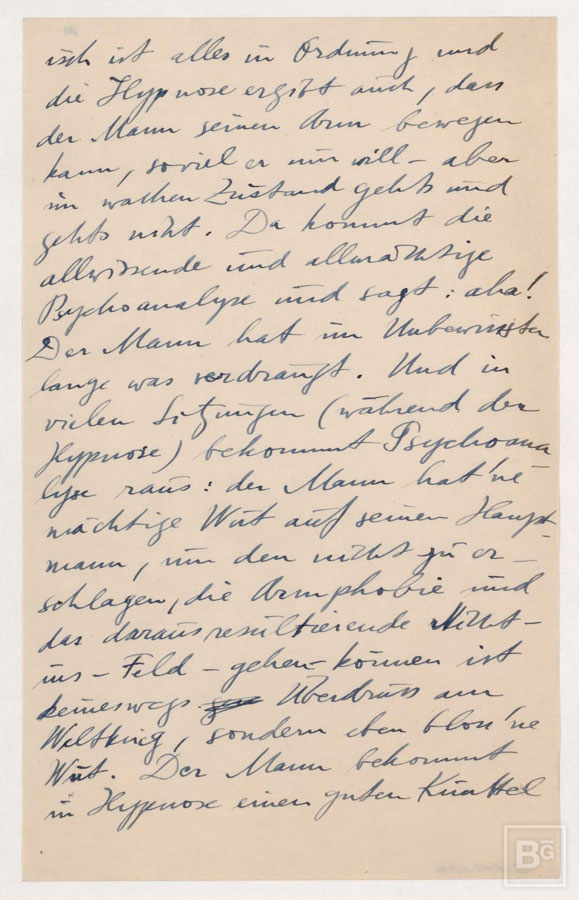 isch ist alles in Ordnung und
die Hypnose ergibt auch, dass
der Mann seinen Arm bewegen
kann, soviel er nur will – aber
im wachen Zustand gehts und
gehts nicht. Da kommt die
allwissende und allmächtige
Psychoanalyse und sagt: aha!
Der Mann hat im Unbewussten
lange was verdrängt. Und in
vielen Sitzungen (während der
Hypnose) bekommt Psychoana
lyse raus: der Mann hat 'ne
mächtige Wut auf seinen Haupt-
mann, um den nicht zu er-
schlagen, die Armphobie und
das daraus resultierende Nicht-
ins-Feld-gehen-können ist
keineswegs Überdruss am
Weltkrieg, sondern eben bloss 'ne
Wut. Der Mann bekommt
in Hypnose einen guten
BG